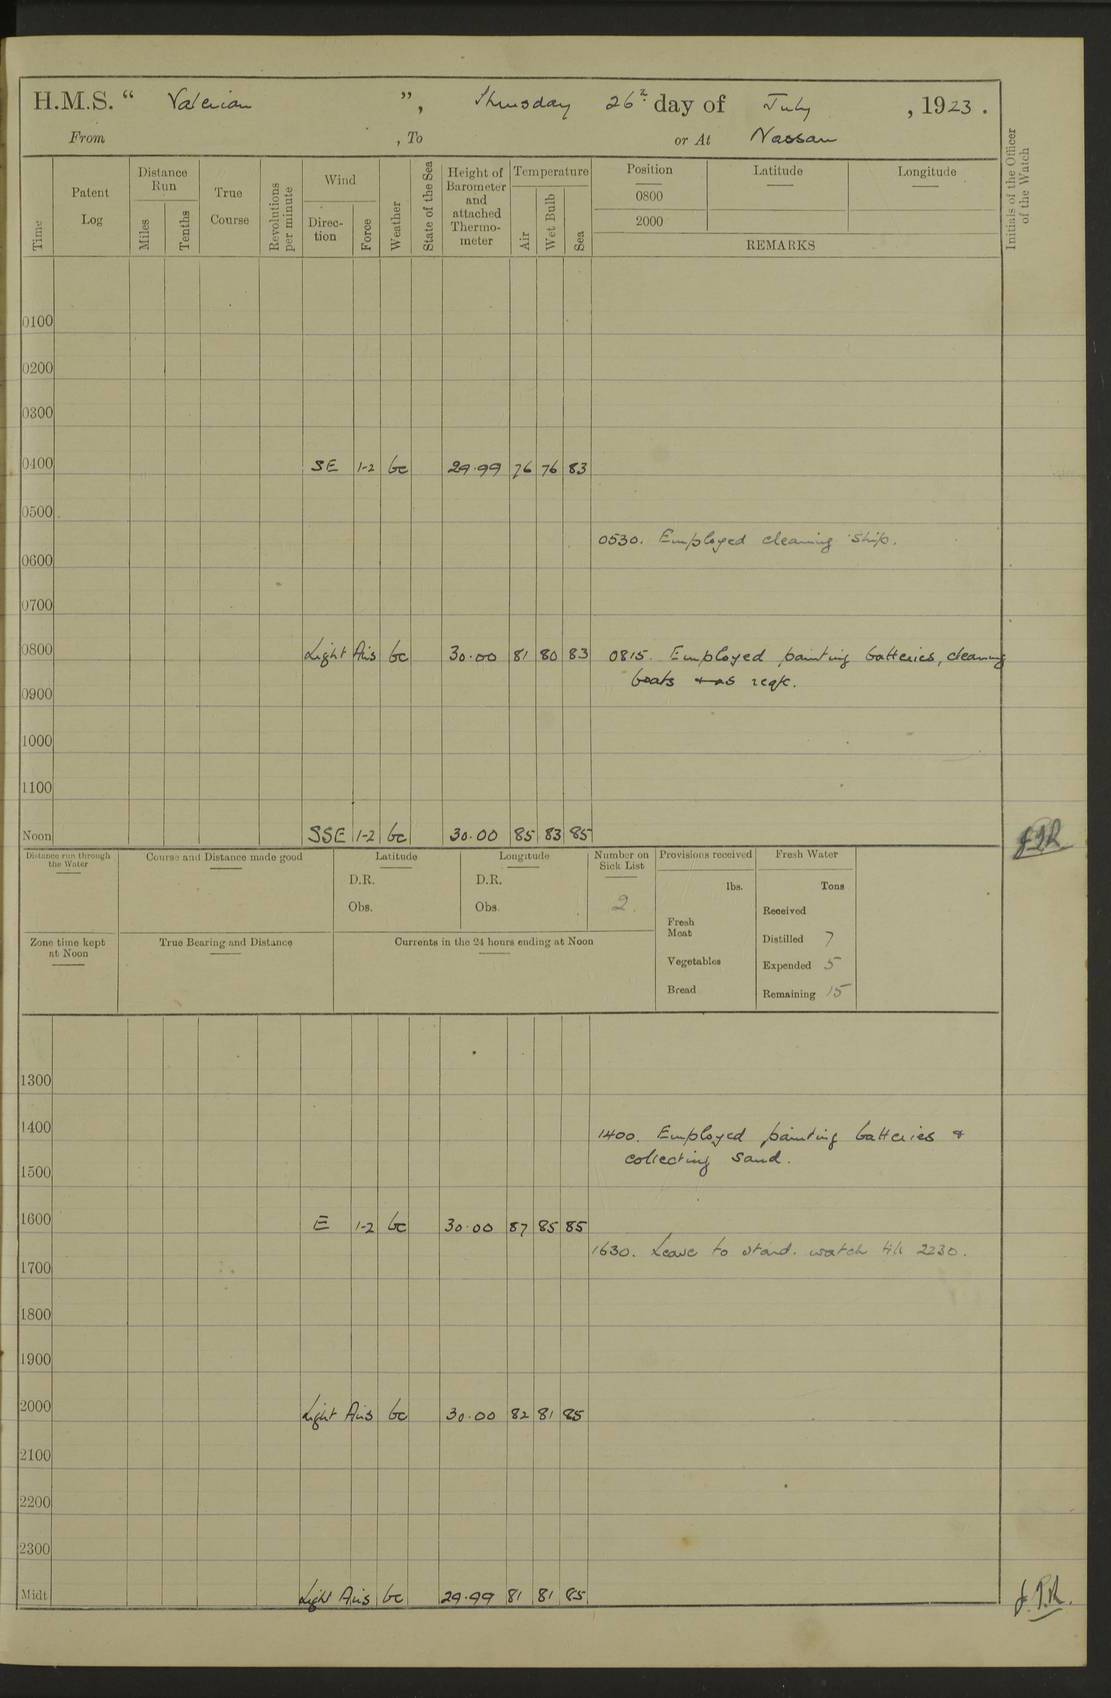 H.M.S. “ Valerian ”, Thursday 26th day of July , 1923 .
From , To or At Nassau
Time
Patent Log
Distance Run
Miles
Tenths
True Course
Revolutions per minute
Wind
Direc-tion
Force
Weather
State of the Sea
Height of Barometer and attached Thermo-meter
Temperature
Air
Wet Bulb
Sea
Position
0800
2000
Latitude
Longitude
REMARKS
Initials of the Officer of the Watch
0100
0200
0300
0400 SE 1-2 bc 29.99 76 76 83
0500
0530. Employed cleaning ship.
0600
0700
0800 Light Airs bc 30.00 81 80 83 0815. Employed painting batteries, cleaning
boats & as req.
0900
1000
1100
Noon SSE 1-2 bc 30.00 85 83 85
Distance run through the Water
Course and Distance made good
Latitude
D.R.
Obs.
Longitude
D.R.
Obs.
Number on Sick List
2
Provisions received
lbs.
Fresh Meat
Vegetables
Bread
Fresh Water
Tons
Received
Distilled 7
Expended 5
Remaining 15
Zone time kept at Noon
True Bearing and Distance
Currents in the 24 hours ending at Noon
1300
1400 1400. Employed painting batteries &
collecting sand.
1500
1600 E 1-2 bc 30.00 87 85 85
1630. Leave to stand. watch till 2230.
1700
1800
1900
2000 Light Airs bc 30.00 82 81 85
2100
2200
2300
Midt Light Airs bc 29.99 81 81 85